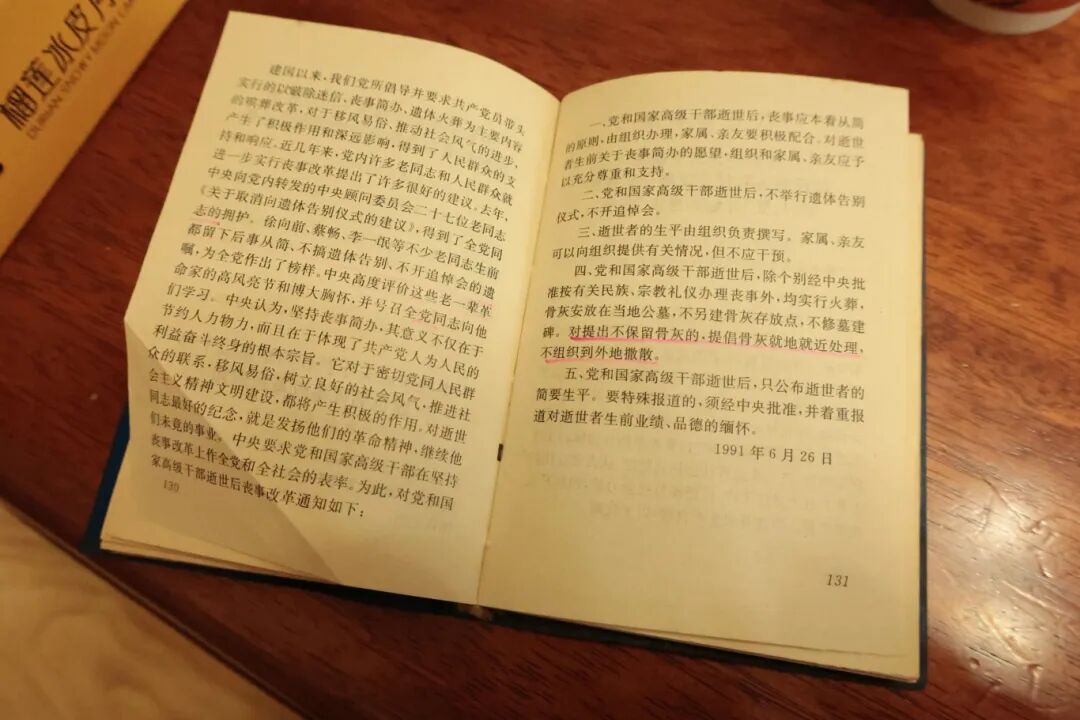 榴莲冰皮月
DURIAN SNOWY MOON CAKE
建国以来，我们党所倡导并要求共产党员带头
实行的以破除迷信、丧事简办、遗体火葬为主要内容
的殡葬改革，对于移风易俗、推动社会风气的进步，
产生了积极作用和深远影响，得到了人民群众的支
持和响应。近几年来，党内许多老同志和人民群众就
进一步实行丧事改革提出了许多很好的建议。去年，
中央向党内转发的中央顾问委员会二十七位老同志
《关于取消向遗体告别仪式的建议》，得到了全党同
志的拥护。徐向前、蔡畅、李一氓等不少老同志生前
都留下后事从简、不搞遗体告别、不开追悼会的遗
嘱，为全党作出了榜样。中央高度评价这些老一辈革
命家的高风亮节和博大胸怀，并号召全党同志向他
们学习。中央认为，坚持丧事简办，其意义不仅在于
节约人力物力，而且在于体现了共产党人为人民的
利益奋斗终身的根本宗旨。它对于密切党同人民群
众的联系，移风易俗，树立良好的社会风气，推进社
会主义精神文明建设，都将产生积极的作用。对逝世
同志最好的纪念，就是发扬他们的革命精神，继续他
们未竟的事业。中央要求党和国家高级干部在坚持
丧事改革上作全党和全社会的表率。为此，对党和国
家高级干部逝世后丧事改革通知如下：
130
一、党和国家高级干部逝世后，丧事应本着从简
的原则，由组织办理，家属、亲友要积极配合。对逝世
者生前关于丧事简办的愿望，组织和家属、亲友应予
以充分尊重和支持。
二、党和国家高级干部逝世后，不举行遗体告别
仪式，不开追悼会。
三、逝世者的生平由组织负责撰写。家属、亲友
可以向组织提供有关情况，但不应干预。
四、党和国家高级干部逝世后，除个别经中央批
准按有关民族、宗教礼仪办理丧事外，均实行火葬，
骨灰安放在当地公墓，不另建骨灰存放点，不修墓建
碑。对提出不保留骨灰的，提倡骨灰就地就近处理，
不组织到外地撒散。
五、党和国家高级干部逝世后，只公布逝世者的
简要生平。要特殊报道的，须经中央批准，并着重报
道对逝世者生前业绩、品德的缅怀。
1991年6月26日
131